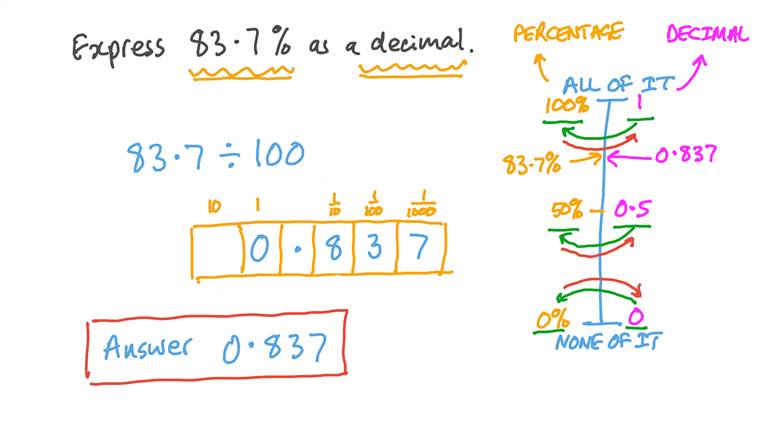 Express 83.7% as a decimal.
PERCENTAGE DECIMAL
ALL OF IT
100% 1
83.7 ÷ 100
83.7% 0.837
10 1 1/10 1/100 1/1000
50% 0.5
0 . 8 3 7
0% 0
NONE OF IT
Answer 0.837